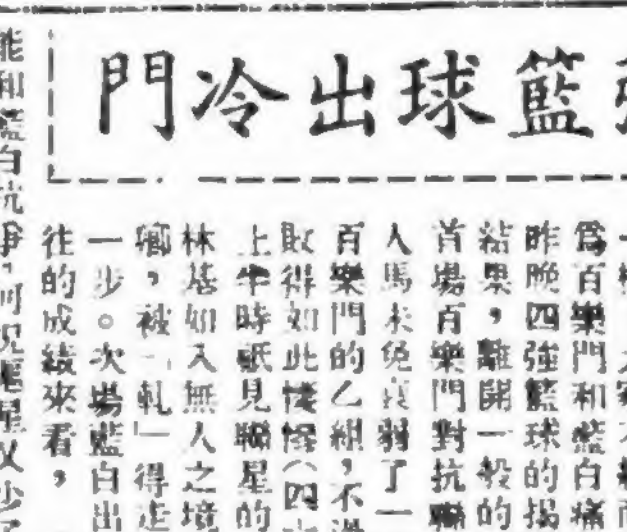 籃球出冷門
為百樂門和藍白痛
昨晚四強籃球的揭
結果，離開一般的
首場百樂門對抗聯
人馬未免衰弱了一
百樂門的乙組，不過
敗得如此悽慘（四
上半時祇見聯星的
林基如入無人之境
鄉，被「軋」得走
一步。次場藍白出
往的成績來看，
能和藍白抗爭，可見